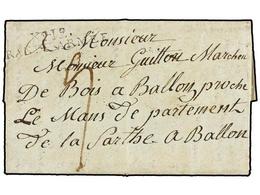 Monsieur
Monsieur Guitton Marchen
De Bois a Ballon proche
Le Mans de partement
de la Sarthe a Ballon